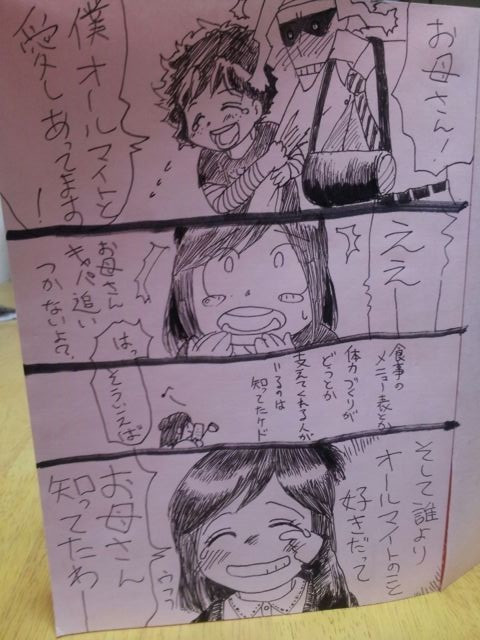 お母さん!
僕オールマイトと
愛しあってます
!
ええ——
お母さん
キャパ追い
つかないよ?
食事の
メニュー表とか
体力づくりが
どうとか
支えてくれる人が
いるのは
知ってたケド
はっ
そういえば
そして誰より
オールマイトのこと
好きだって
お母さん
知ってたわ
うっ